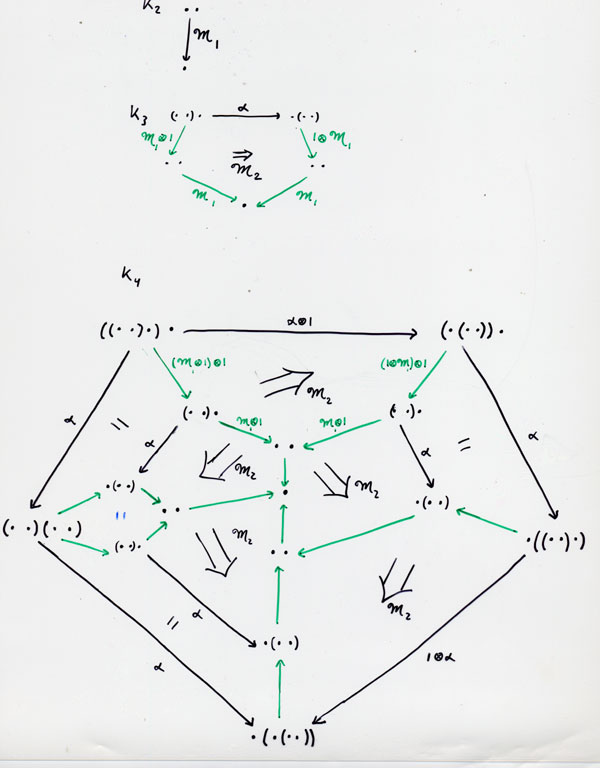 K2 ··
m1
·
K3 (··)· α ·(··)
m1⊗1 1⊗m1
·· ⇒ ··
m2
m1 · m1
K4
((··)·)· α⊗1 (·(··))·
(m1⊗1)⊗1 (1⊗m1)⊗1
m2
(··)· (··)·
α = m1⊗1 m1⊗1 = α
α ·· α
m2 m2
·(··) ·(··)
·· ·
(··)(··) = m2 ·((··)·)
(··)· ··
m2
= α ·(··)
α 1⊗α
·(·(··))